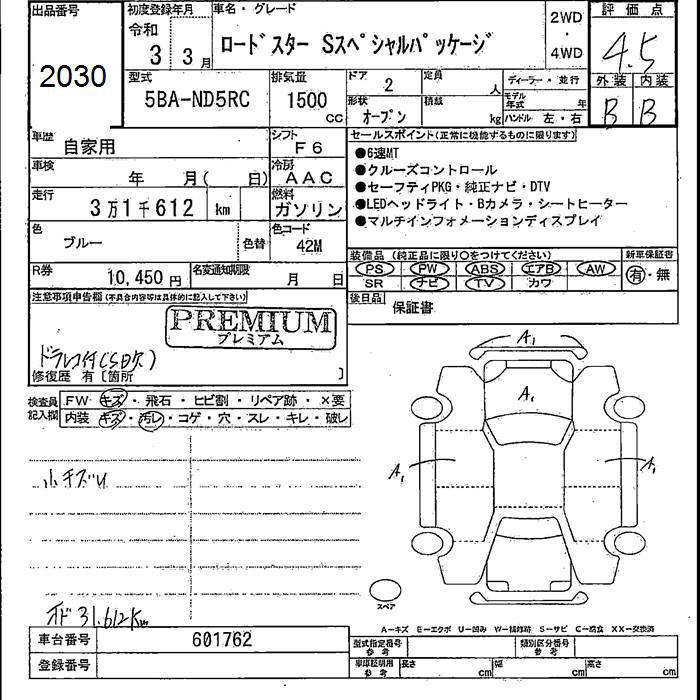 出品番号 初度登録年月 車名・グレード 評価点
令和 2WD
3 3月 ロードスター Sスペシャルパッケージ ・ 4.5
4WD
2030 型式 排気量 ドア 2 定員 人 ディーラー・並行 外装 内装
5BA-ND5RC 1500 cc 形状 オープン 積載 kg モデル年式 年 B B
ハンドル 左・右
車歴 自家用 シフト F6 セールスポイント(正常に機能するものに限ります)
●6速MT
車検 年 月( 日) 冷房 AAC ●クルーズコントロール
●セーフティPKG・純正ナビ・DTV
走行 3万1千612 km 燃料 ガソリン ●LEDヘッドライト・Bカメラ・シートヒーター
●マルチインフォメーションディスプレイ
色 ブルー 色替 色コード 42M
装備品(純正品に限り○をつけてください) 新車保証書
R券 10,450円 名変通知期限 月 日 PS PW ABS エアB AW 有・無
SR ナビ TV カワ
注意事項申告欄(不具合内容等は具体的に記入して下さい) 後日品 保証書
PREMIUM
プレミアム
ドラレコ付(SD欠)
修復歴 有〔箇所 〕
検査員記入欄 FW キズ・飛石・ヒビ割・リペア跡・×要
内装 キズ・汚レ・コゲ・穴・スレ・キレ・破レ
A1
A1
A1 A1
小キズU
スペア
オド 31.612Km
A−キズ E−エクボ U−凹み W−補修跡 S−サビ C−腐食 XX−交換済
車台番号 601762 型式指定番号 参考 類別区分番号 参考
登録番号 車庫証明用 参考 長さ cm 幅 cm 高さ cm